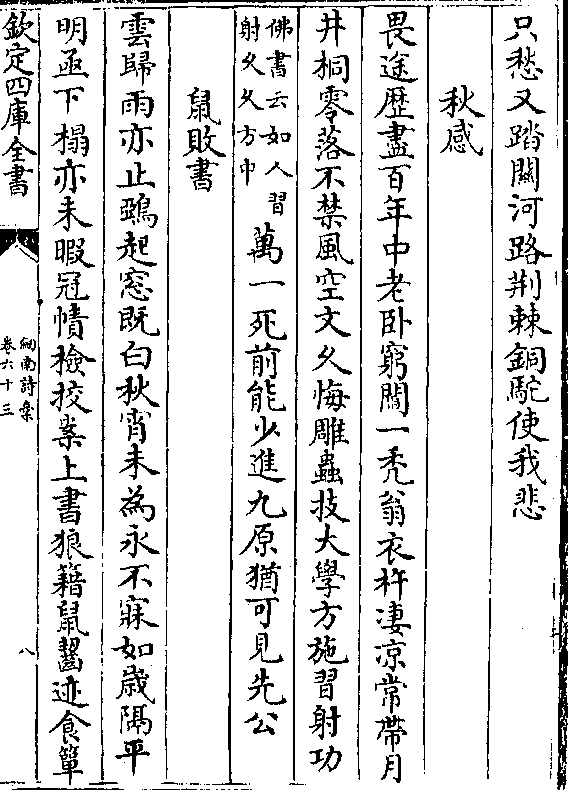 只愁又踏關河路荆棘銅駝使我悲
秋感
畏途歴盡百年中老卧窮閻一禿翁衣杵凄凉常帶月
井桐零落不禁風空文久悔雕蟲技大學方施習射功
佛書云如人習
射久久方中
萬一死前能少進九原猶可見先公
鼠敗書
雲歸雨亦止鵶起窓既白秋宵未為永不寐如歲隔平
明亟下榻亦未暇冠幘檢挍案上書狼籍鼠齧迹食簞
欽定四庫全書
劒南詩稾
卷六十三
八